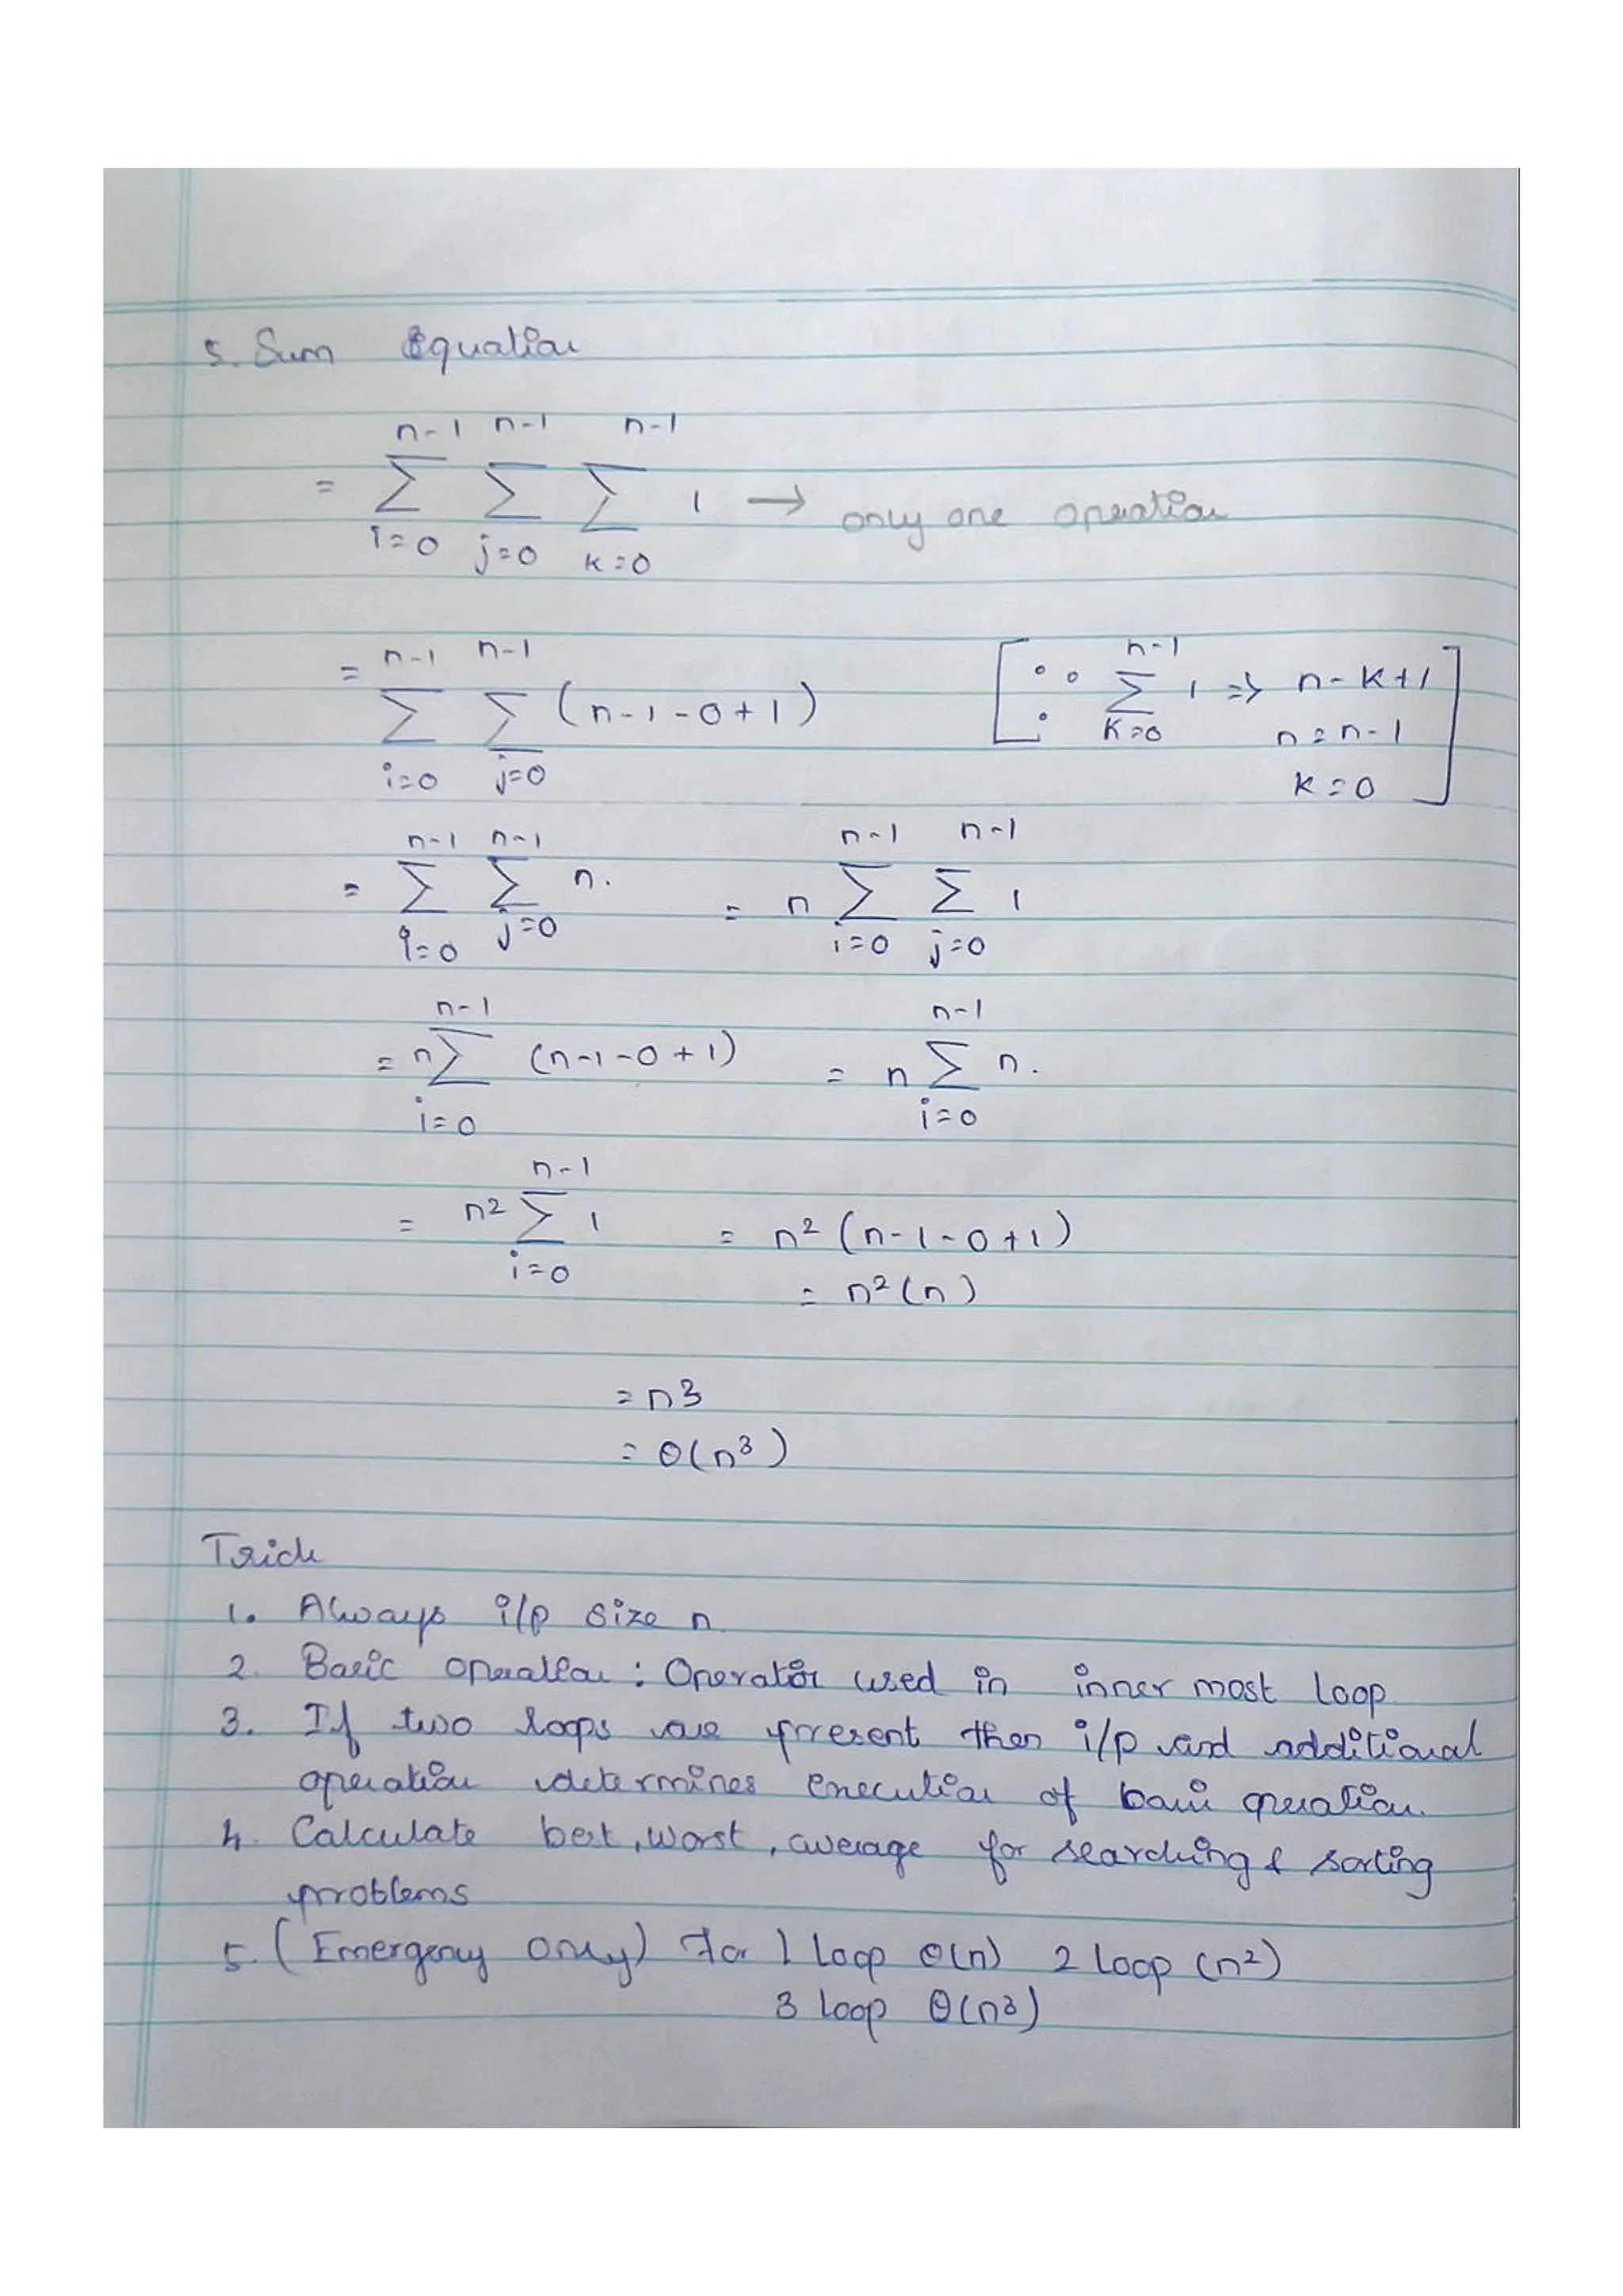 5. Sum Equation
= n-1∑i=0 n-1∑j=0 n-1∑k=0 1 → only one operation
= n-1∑i=0 n-1∑j=0 (n-1-0+1) [∵ n-1∑K=0 1 => n-K+1
n=n-1
K=0]
= n-1∑i=0 n-1∑j=0 n. = n n-1∑i=0 n-1∑j=0 1
= n n-1∑i=0 (n-1-0+1) = n n-1∑i=0 n.
= n² n-1∑i=0 1 = n² (n-1-0+1)
= n²(n)
= n3
= θ(n³)
Trick
1. Always i/p size n
2. Basic operation : Operator used in inner most loop
3. If two loops are present then i/p and additional
operation determines execution of basic operation.
4. Calculate best, worst, average for searching & sorting
problems
5. (Emergency only) For 1 loop θ(n) 2 loop (n²)
3 loop θ(n³)